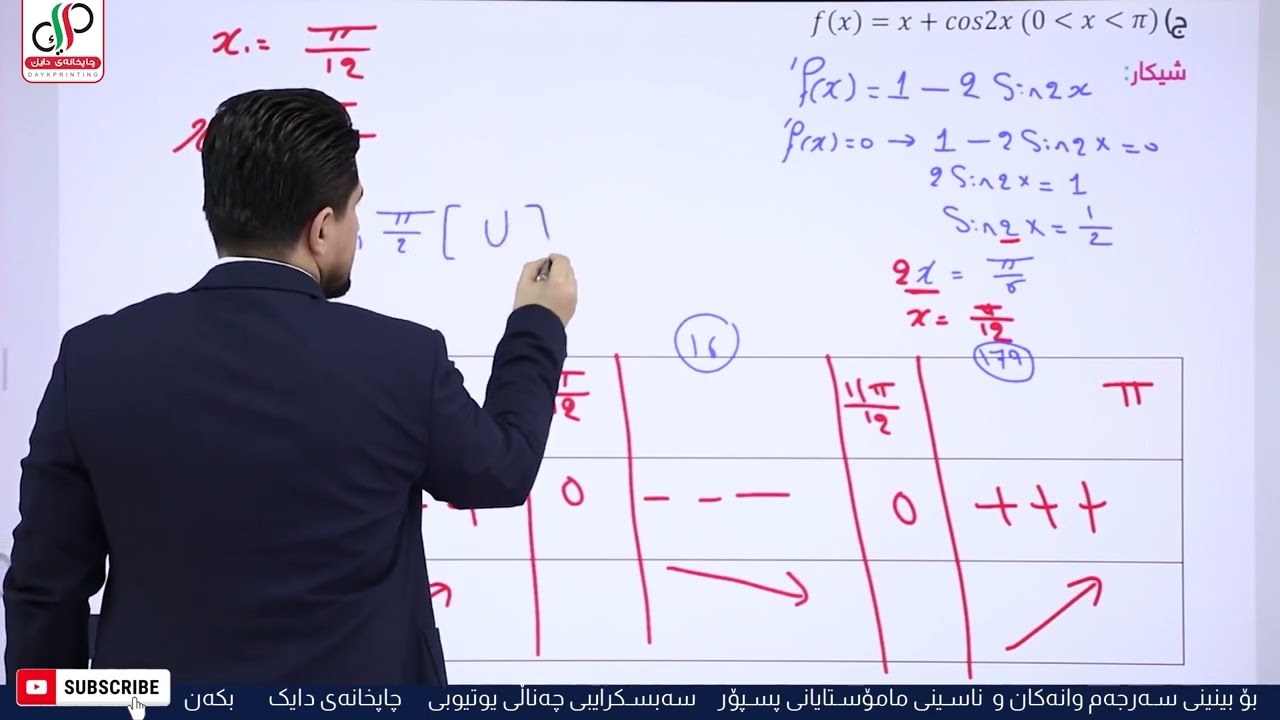 چاپخانەی دایک
DAYKPRINTING
ج) f(x) = x + cos2x (0 < x < π)
شیکار:
f'(x) = 1 - 2 Sin2x
f'(x) = 0 → 1 - 2 Sin2x = 0
2 Sin2x = 1
Sin2x = 1/2
2x = π/6
x = π/12
x₁ = π/12
π/2 [ ∪ ]
16
179
11π/12
π
0
- - -
0
+ + +
SUBSCRIBE
بۆ بینینی سەرجەم وانەکان و ناسینی مامۆستایانی پسپۆر سەبسکرایبی چەناڵی یوتیوبی چاپخانەی دایک بکەن